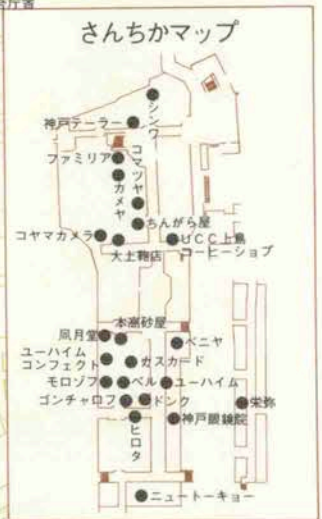 さんちかマップ
シンワ
神戸テーラー
ファミリア
コマツヤ
カメヤ
ちんがら屋
コヤマカメラ
大上鞄店
UCC上島
コーヒーショプ
本高砂屋
凮月堂
ベニヤ
ユーハイム
コンフェクト
カスカード
モロゾフ
ベル
ユーハイム
ゴンチャロフ
ドンク
栄弥
ヒロタ
神戸眼鏡院
ニュートーキョー